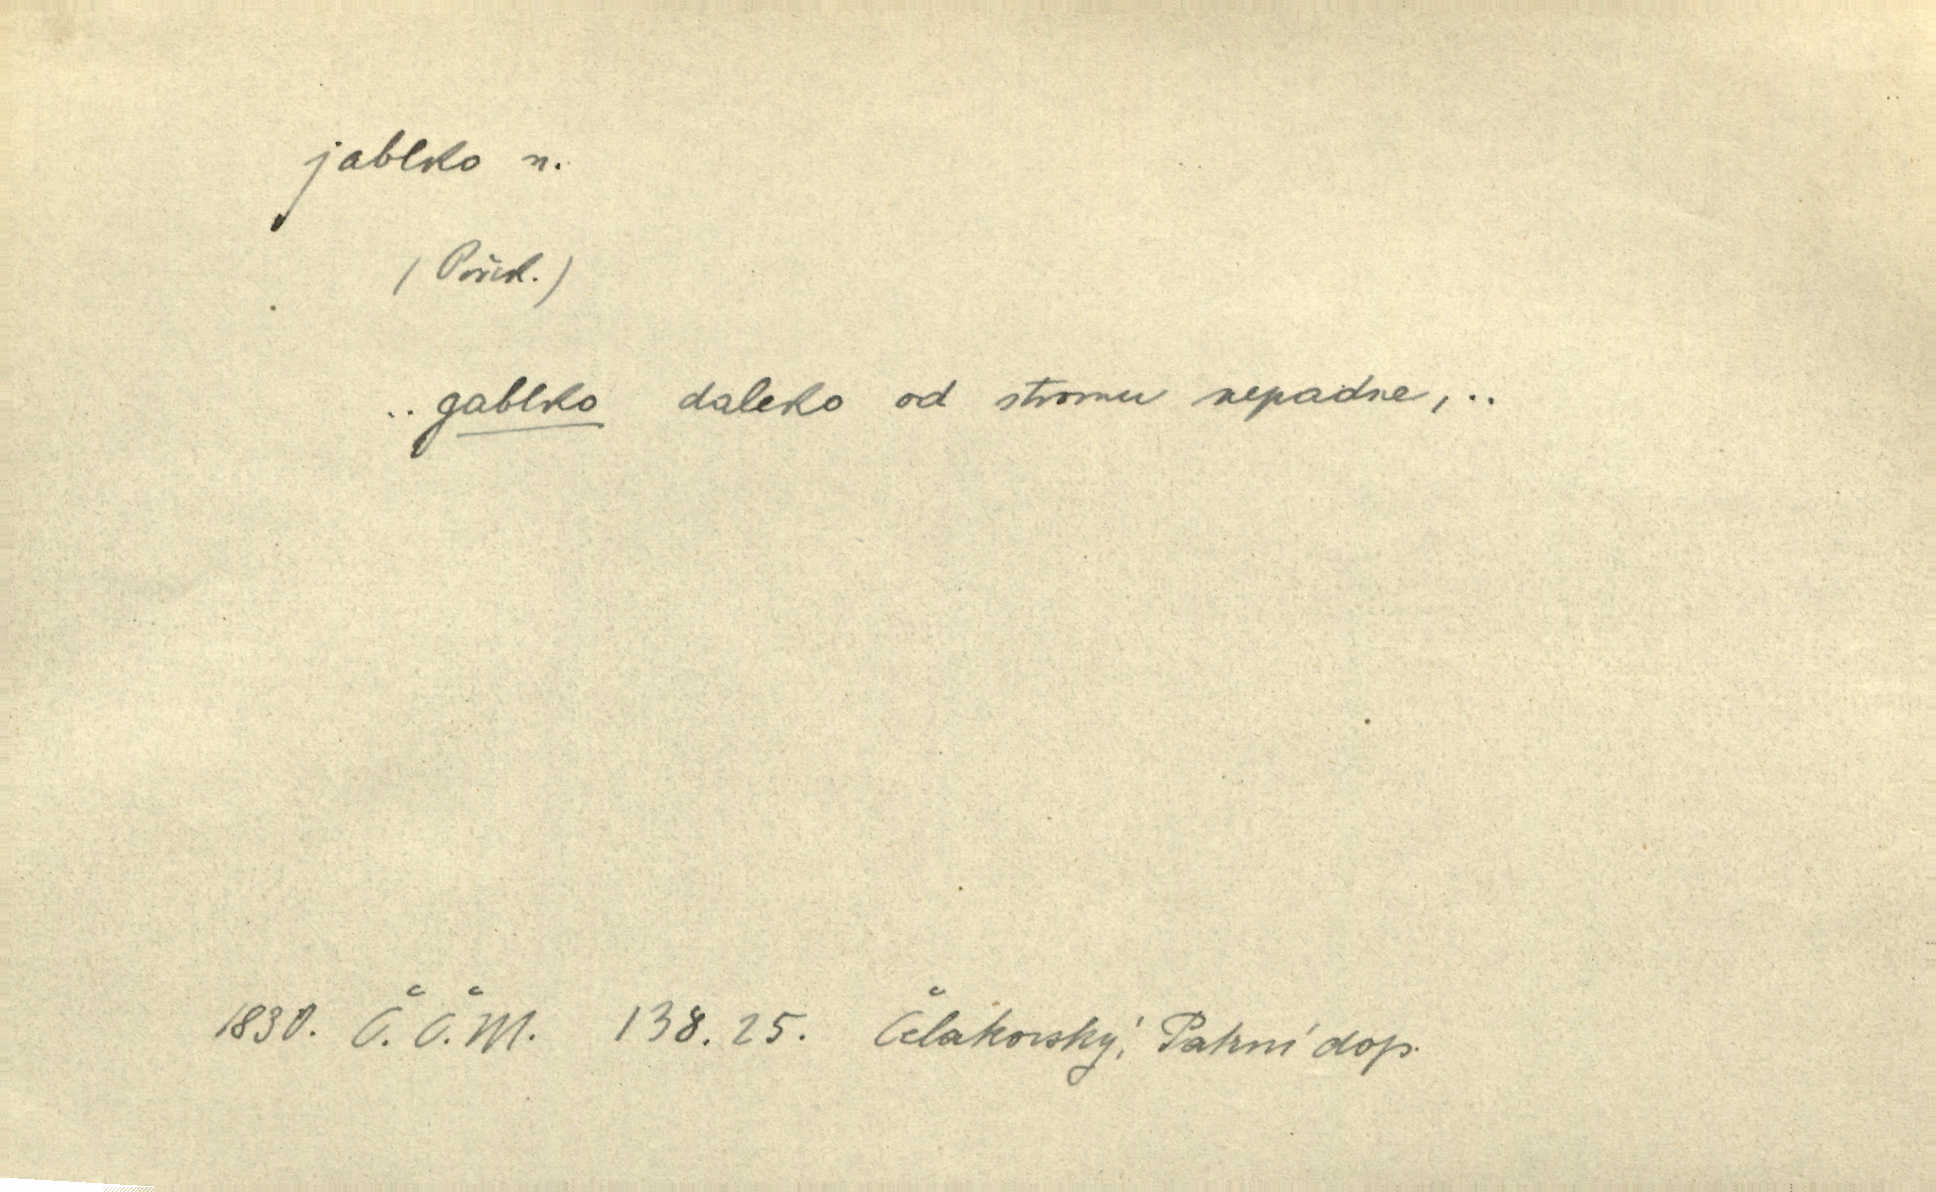 jablko n.
(Pořek.)
.. gablko daleko od stromu nepadne, ..
1830. Č.Č.M. 138.25. Čelakovský, Patrní dop.